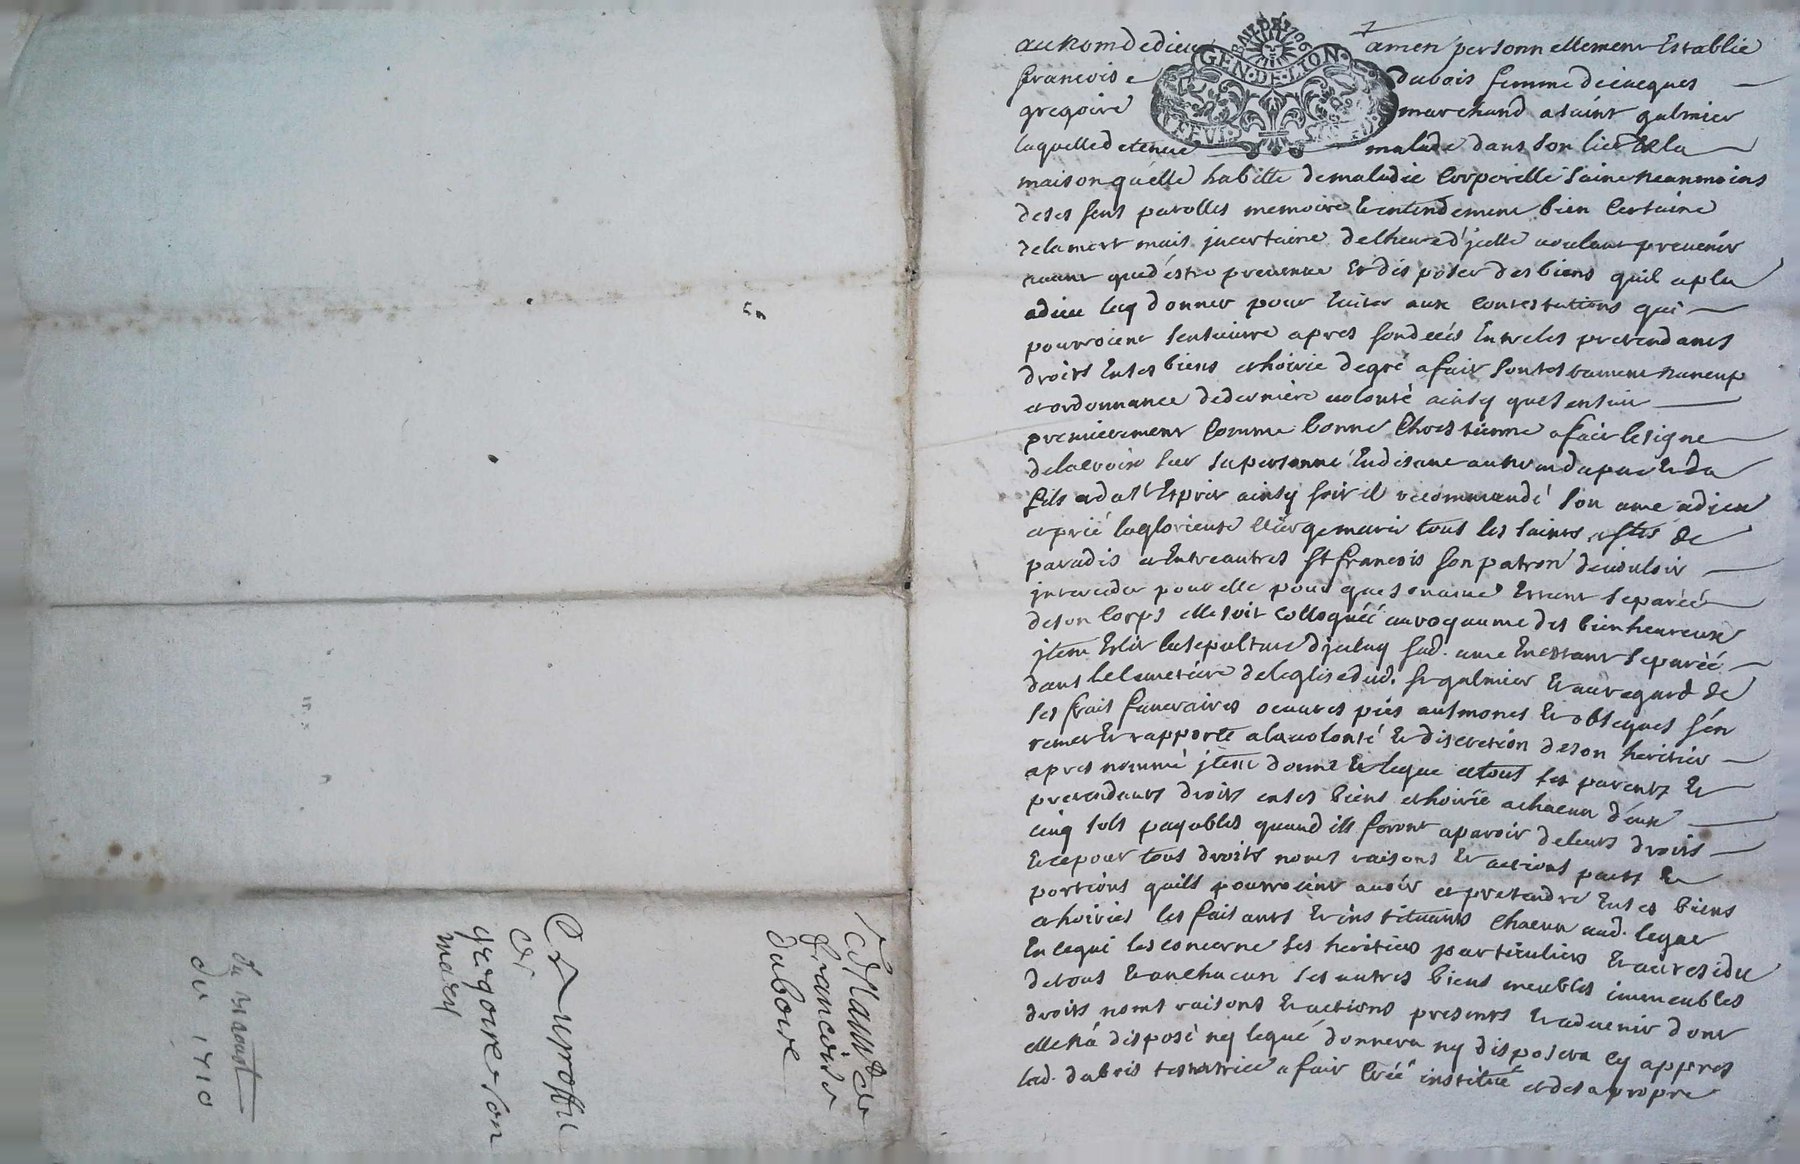 au nom de dieu amen personnellement Establie
francoise dubois femme de jacques
gregoire marchand a saint galmier
laquelle detenue malade dans son lict de la
maison quelle habitte de maladie Corporelle saine neanmoins
de ses sens parolles memoire Et entendement bien Certaine
de la mort mais jncertaine de lheure d'jcelle voulant prevenir
avant que d'estre prevenue Et disposer des biens quil a plu
a dieu luy donner pour Eviter aux Contestations qui
pourroient sensuivre apres son deces Entre les pretendants
droits En ses biens et hoirie de gré a fait son testament nuncup
et ordonnance de derniere volonté ainsy que sensuit
premierement Comme bonne Chrestienne a fait le signe
de la croix sur sa personne En disant au nom du pere Et du
fils et du st Esprit ainsy soit il recommandé son ame a dieu
et prié la glorieuse vierge marie tous les saints et stes de
paradis et Entre autres st francois son patron de vouloir
jnterceder pour elle pour que son ame Estant separéé
de son Corps elle soit Colloquéé au royaume des bien heureux
jtem Eslit la sepulture d'jceluy sad. ame En estant separéé
dans le Cimetiere de leglise dud. st galmier Et au regard de
ses frais funeraires oeuvres pies aulmones Et obseques s'en
remet Et rapporte a la volonté Et discretion de son heritier
apres nommé jtem donne Et legue a tous ses parents Et
pretendants droits en ses biens et hoirie a chacun d'eux
cinq sols payables quand ils feront aparoir de leurs droits
Et ce pour tous droits noms raisons Et actions parts Et
portions quils pourroient avoir et pretendre En ses biens
et hoiries les faisants Et instituants Chacun aud. legat
En ce qui les concerne ses heritiers particuliers Et au residu
de tous Et un chacun ses autres biens meubles immeubles
droits noms raisons Et actions presents Et advenir dont
elle n'a disposé ny legué donnera ny disposera Cy appres
lad. dubois testatrice a fait Créé institué et de sa propre
francoise
duboire
gregoire son
mary
du 1710